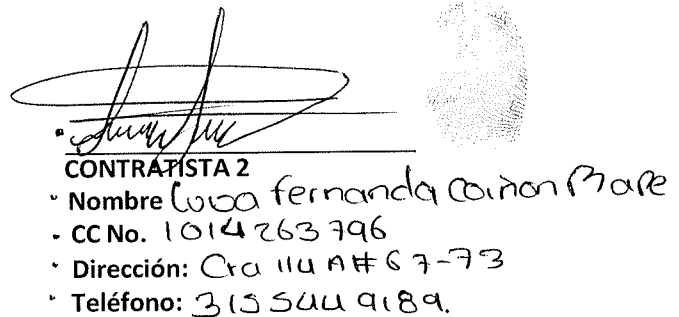 CONTRATISTA 2
Nombre fernanda
CC No. 1014263796
Dirección: Cra 114 A # 67-73
Teléfono: 3155449189.